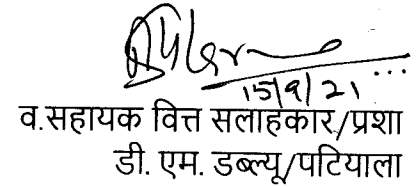 15/9/21
व.सहायक वित्त सलाहकार/प्रशा
डी. एम. डब्ल्यू/पटियाला